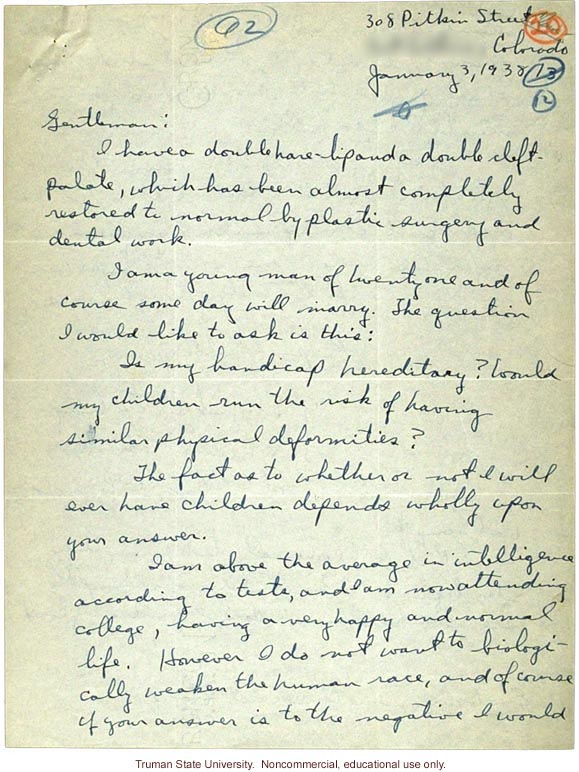 92
308 Pitkin Street
Colorado
January 3, 1938
13
12
Gentleman:
I have a double hare-lip and a double cleft-
palate, which has been almost completely
restored to normal by plastic surgery and
dental work.
I am a young man of twenty one and of
course some day will marry. The question
I would like to ask is this:
Is my handicap hereditary? Would
my children run the risk of having
similar physical deformities?
The fact as to whether or not I will
ever have children depends wholly upon
your answer.
I am above the average in intelligence
according to tests, and I am now attending
college, having a very happy and normal
life. However I do not want to biologi-
cally weaken the human race, and of course
if your answer is to the negative I would
Truman State University. Noncommercial, educational use only.